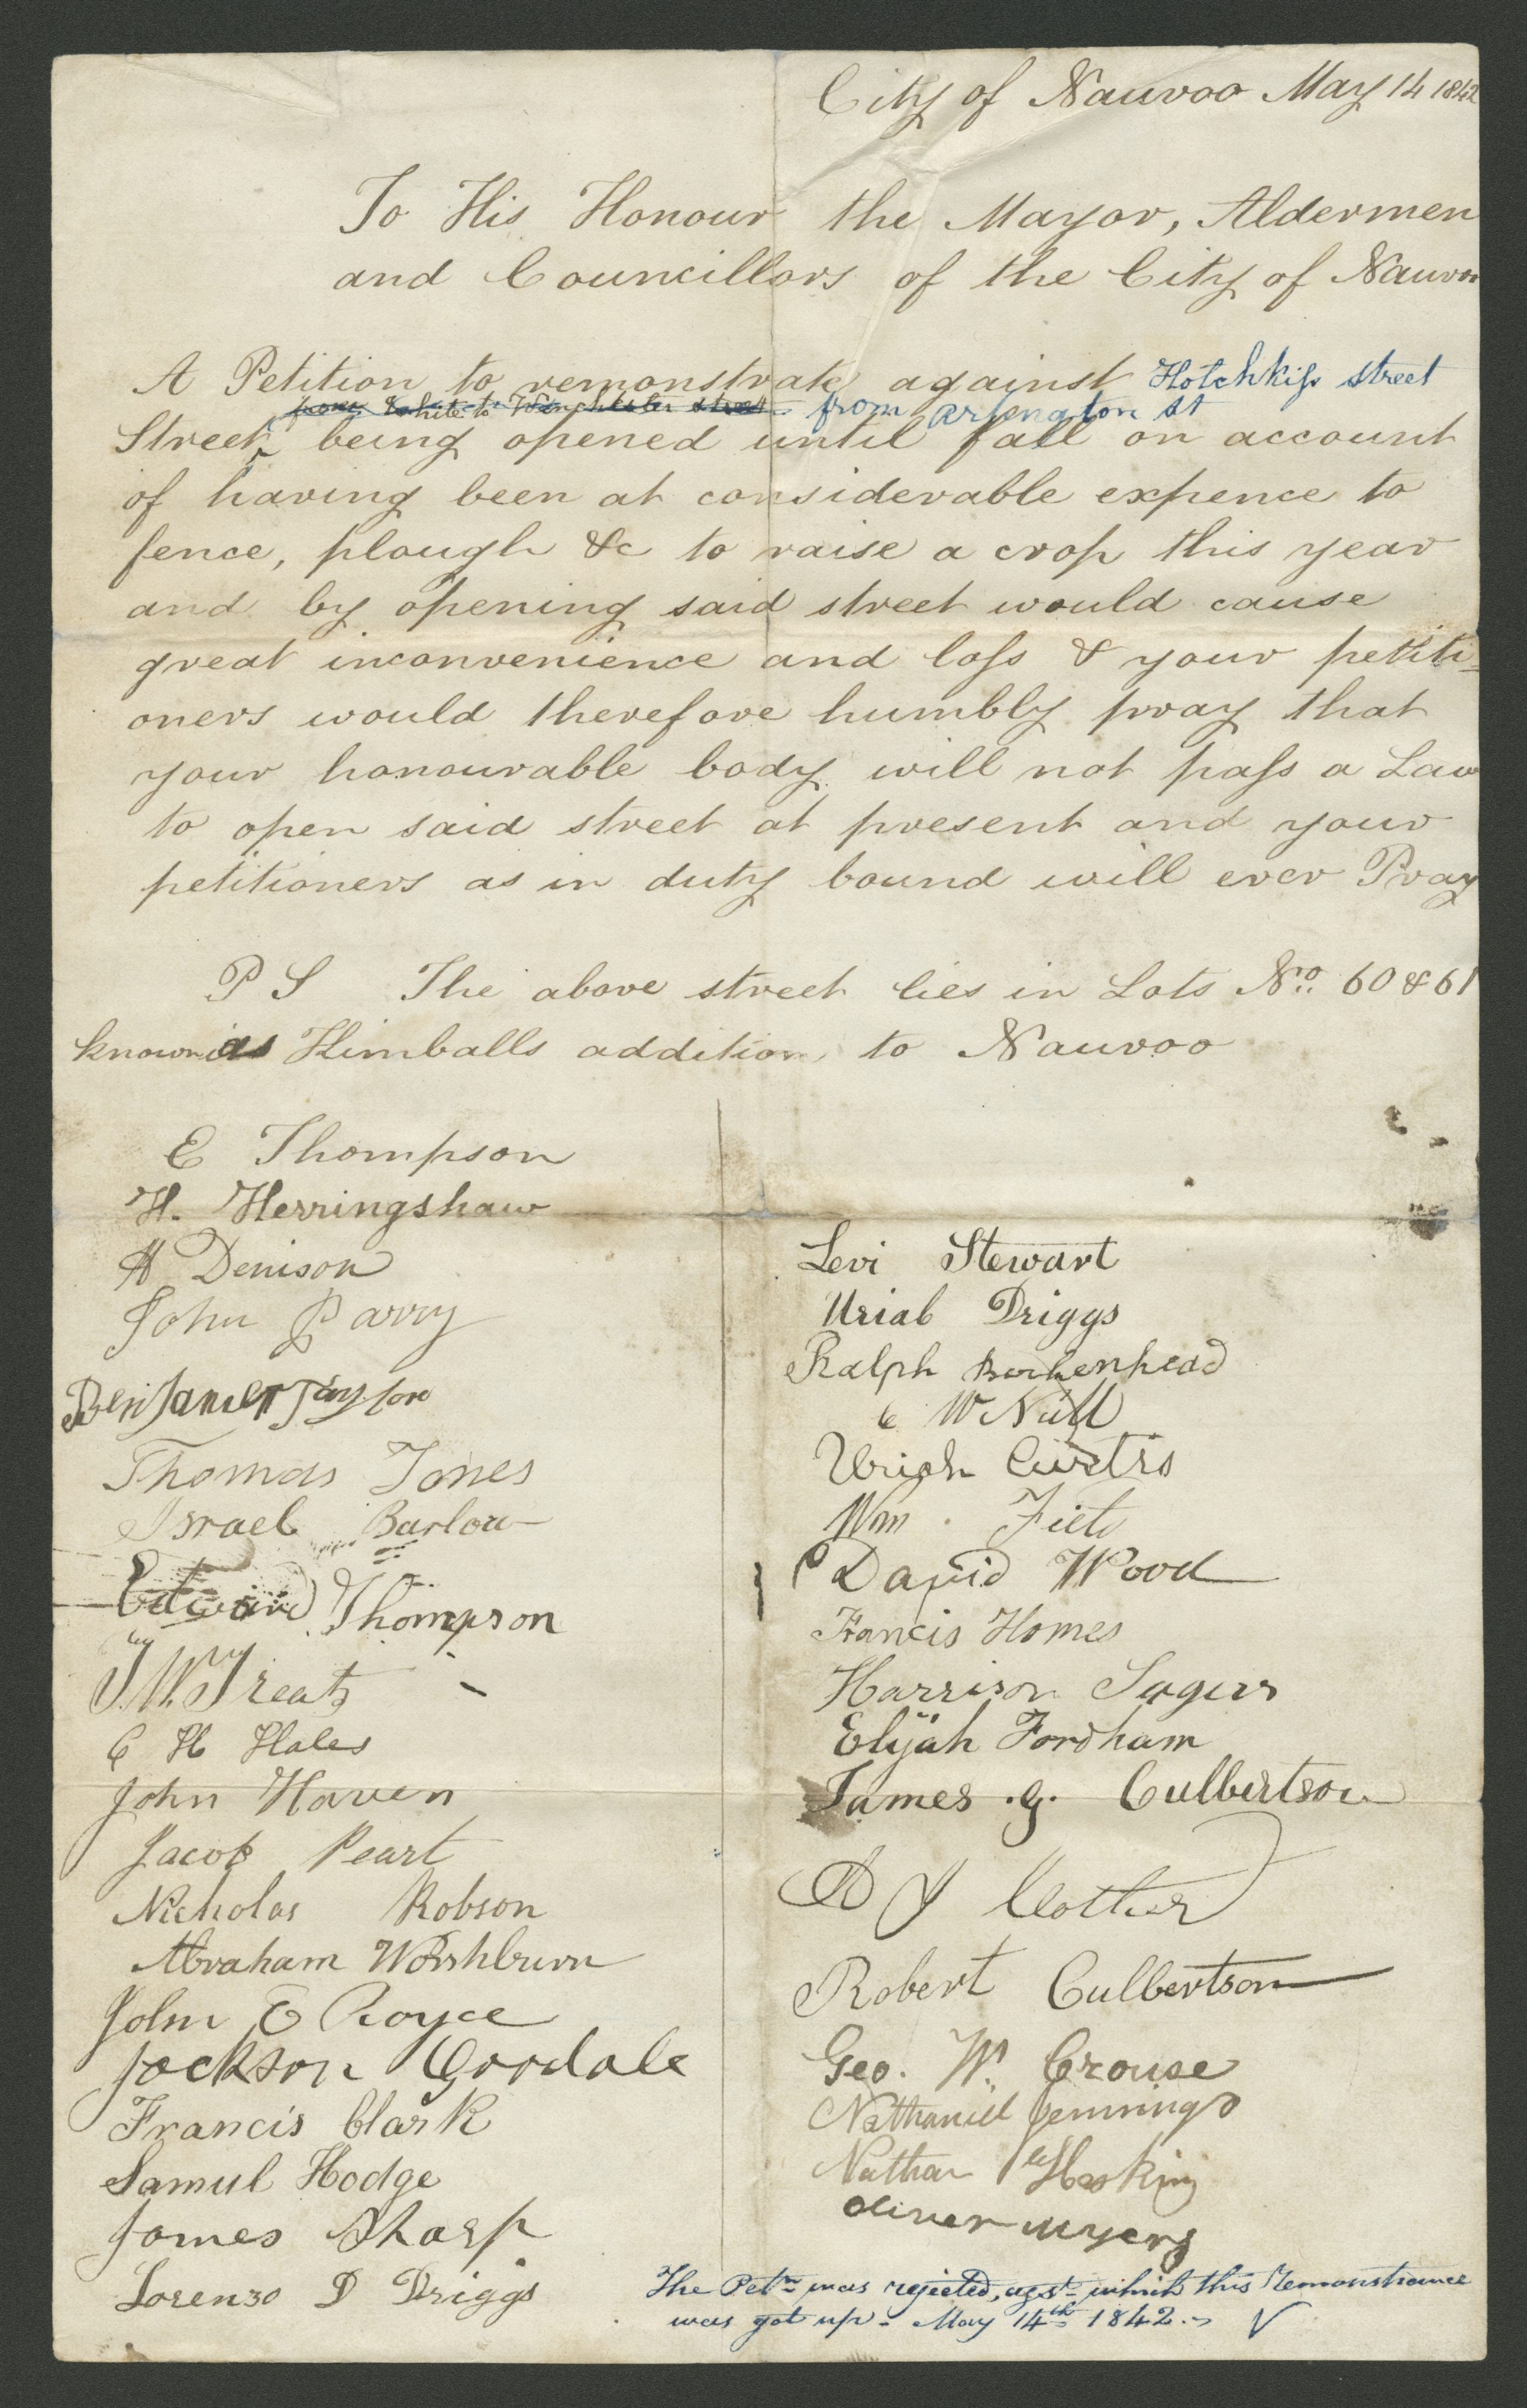 City of Nauvoo May 14 1842
To His Honour the Mayor, Aldermen
and Councillors of the City of Nauvoo
A Petition to remonstrate against Hotchkiss street
from White to Winchester street from arlington st
Street being opened until fall on account
of having been at considerable expence to
fence, plough &c to raise a crop this year
and by opening said street would cause
great inconvenience and loss & your petiti-
oners would therefore humbly pray that
your honourable body will not pass a Law
to open said street at present and your
petitioners as in duty bound will ever Pray
P S The above street lies in Lots No. 60 & 61
known as Kimballs addition to Nauvoo
E Thompson
H. Herringshaw
A Denison
John Parry
Benjamin Taylor
Thomas Jones
Israel Barlow
Edward Thompson
T. W. Treat
C H Hales
John Haven
Jacob Peart
Nicholas Robson
Abraham Worshburn
John E Royce
Jackson Goodale
Francis Clark
Samul Hodge
James Sharp
Lorenzo D Driggs
Levi Stewart
Uriah Driggs
Ralph
C W Null
Uriah Curtis
Wm.
David Wood
Francis Homes
Harrison Sagers
Elijah Fordham
James .G. Culbertson
A J
Robert Culbertson
Geo. W. Crouse
Nathaniel Jennings
Nathan
Oliver Myers
The Petn. was rejected, agst. which this Remonstrance
was got up - May 14th 1842.